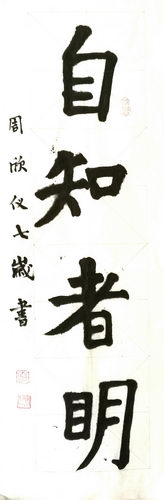 自知者明
周欣仪七岁書